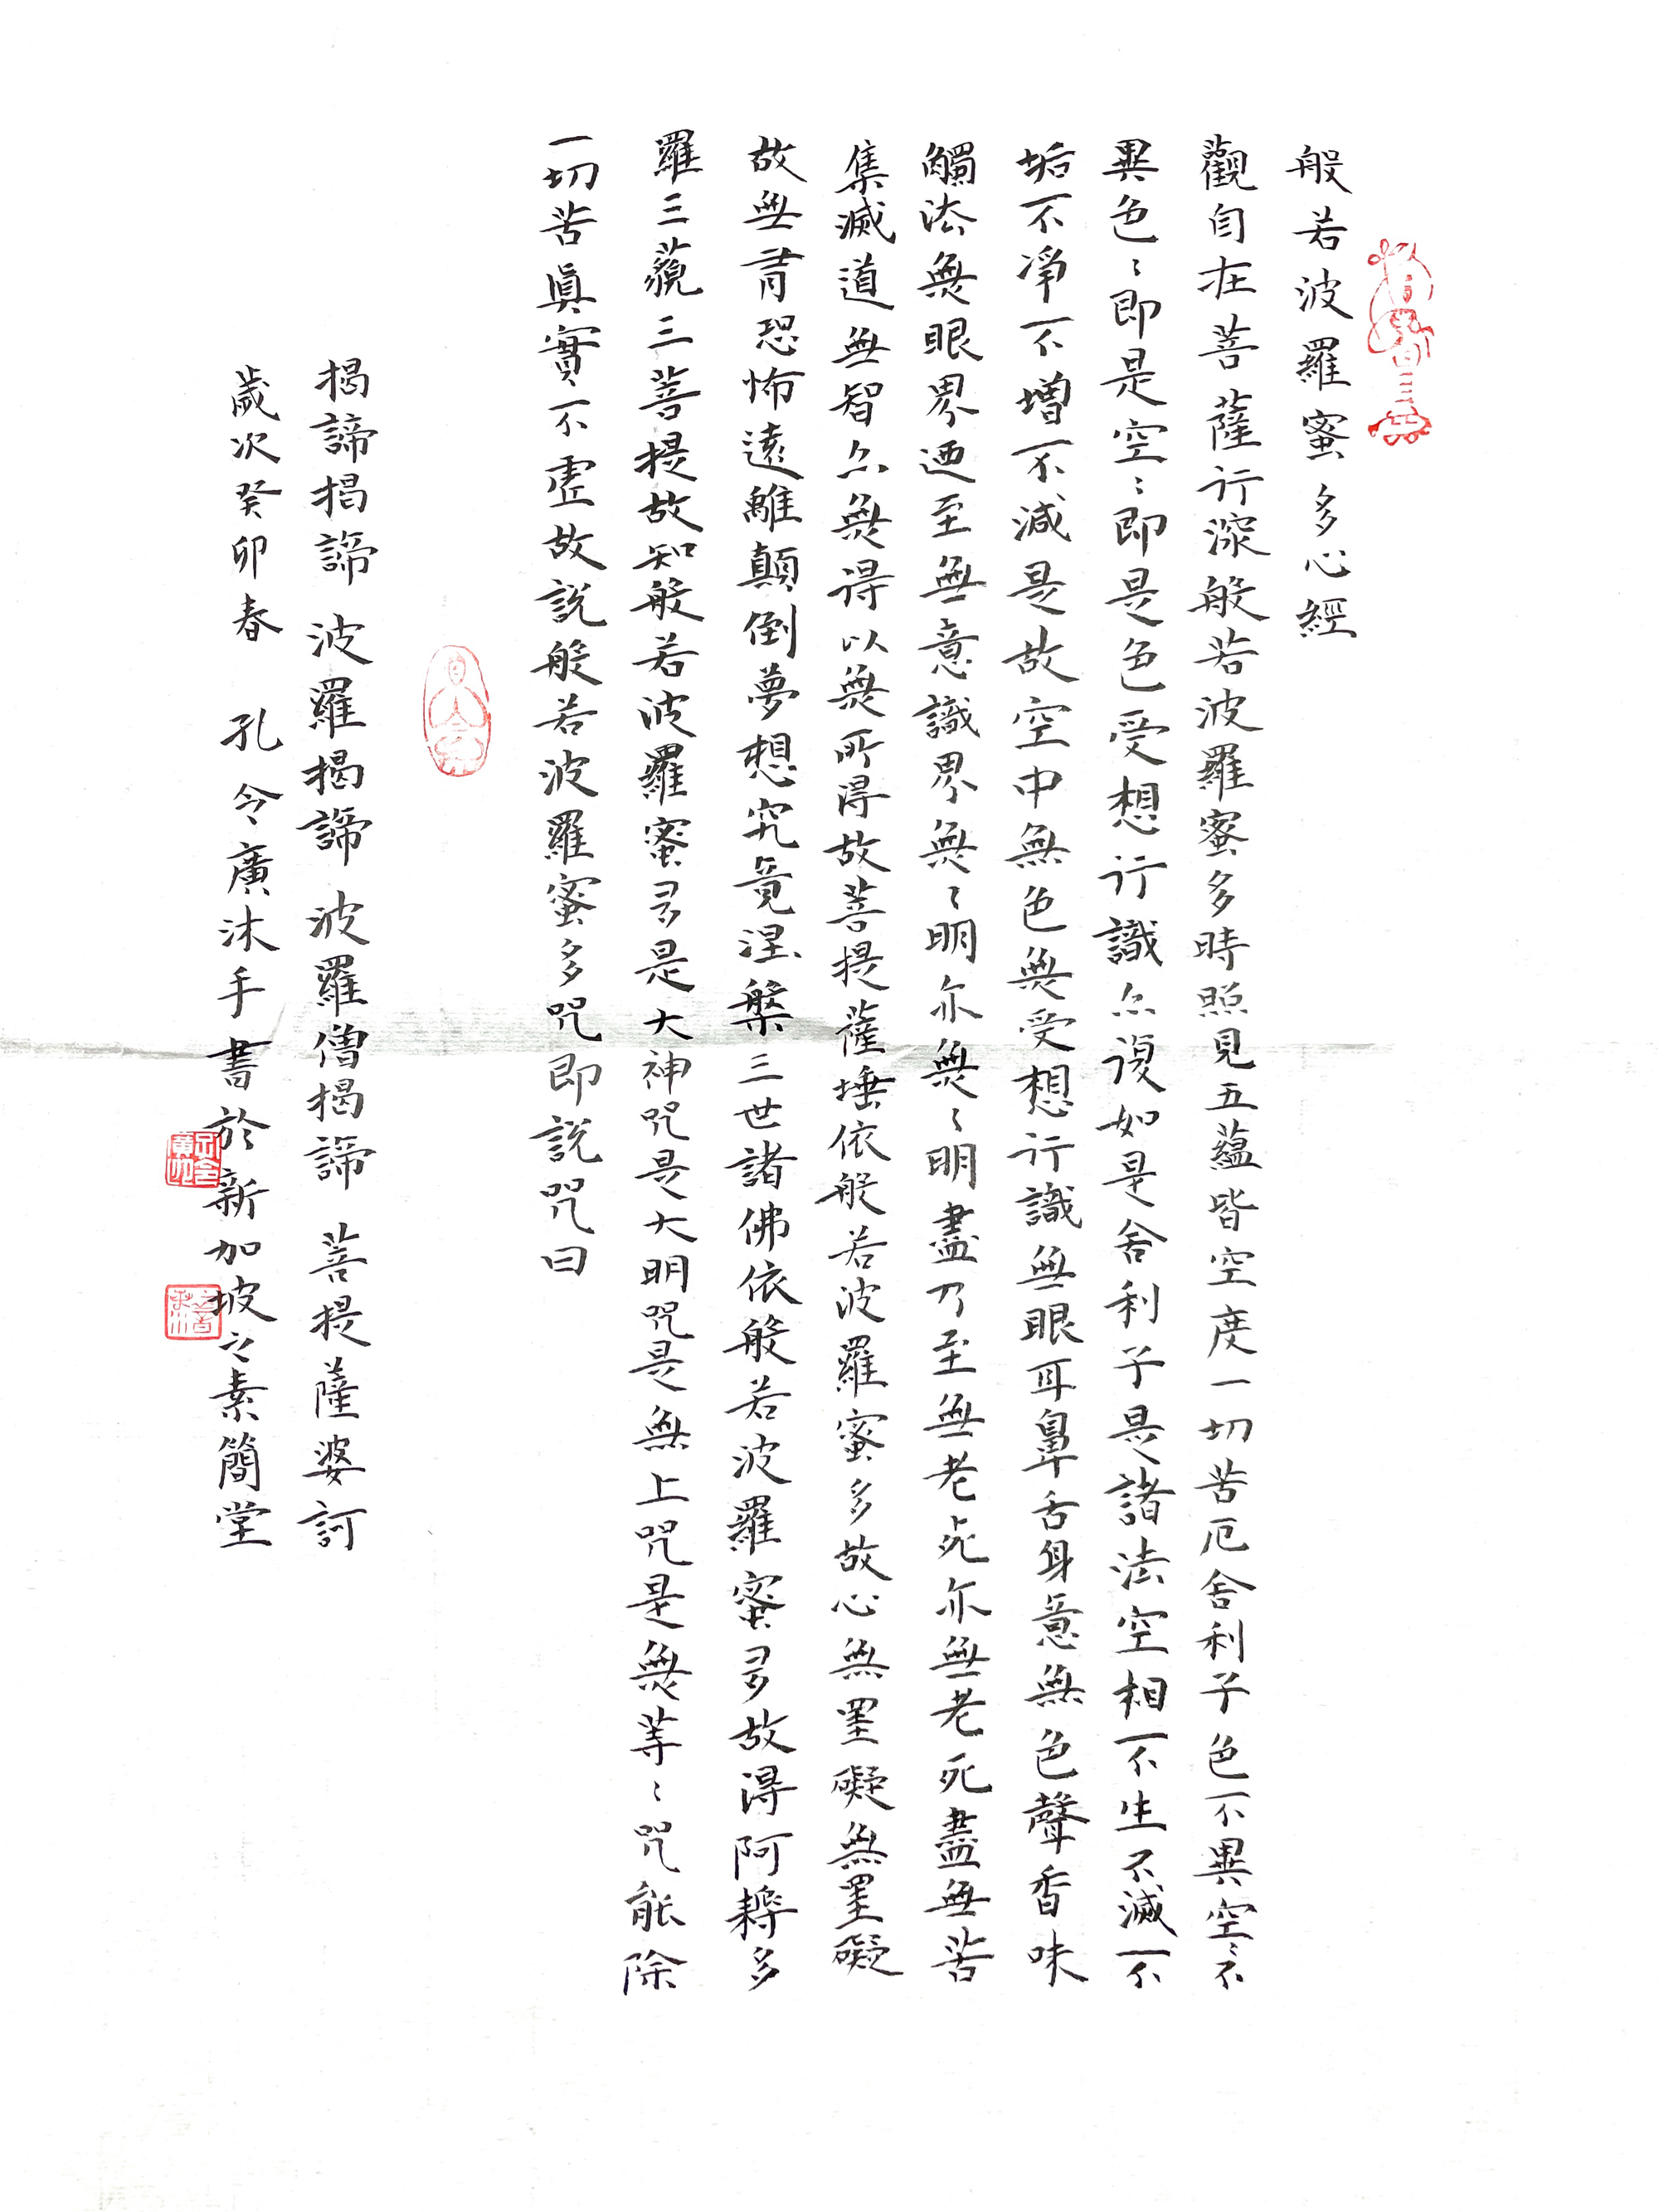 般若波羅蜜多心經
觀自在菩薩行深般若波羅蜜多時照見五蘊皆空度一切苦厄舍利子色不異空〻不
異色〻即是空〻即是色受想行識亦復如是舍利子是諸法空相不生不滅不
垢不淨不增不減是故空中無色無受想行識無眼耳鼻舌身意無色聲香味
觸法無眼界迺至無意識界無〻明亦無〻明盡乃至無老死亦無老死盡無苦
集滅道無智亦無得以無所得故菩提薩埵依般若波羅蜜多故心無罣礙無罣礙
故無有恐怖遠離顛倒夢想究竟涅槃三世諸佛依般若波羅蜜多故得阿耨多
羅三藐三菩提故知般若波羅蜜多是大神咒是大明咒是無上咒是無等〻咒能除
一切苦眞實不虛故說般若波羅蜜多咒即說咒曰
揭諦揭諦 波羅揭諦 波羅僧揭諦 菩提薩婆訶
歲次癸卯春 孔令廣沐手書於新加坡之素簡堂